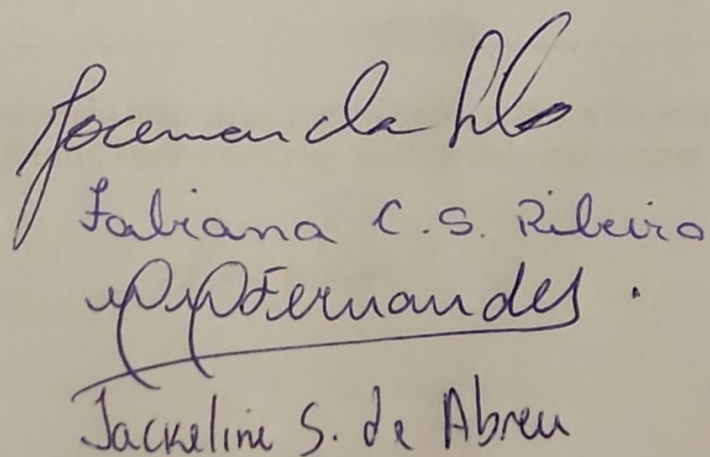 Jocemar da Silva
Fabiana C. S. Ribeiro
Fernandes.
Jackeline S. de Abreu